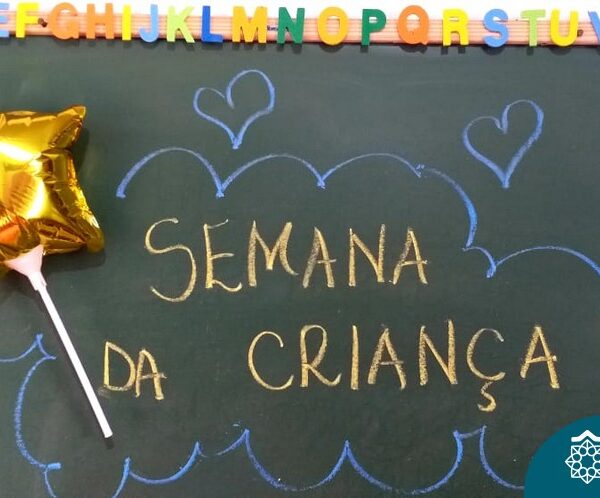 EFGHIJKLMNOPQRSTUV
SEMANA
DA CRIANÇA